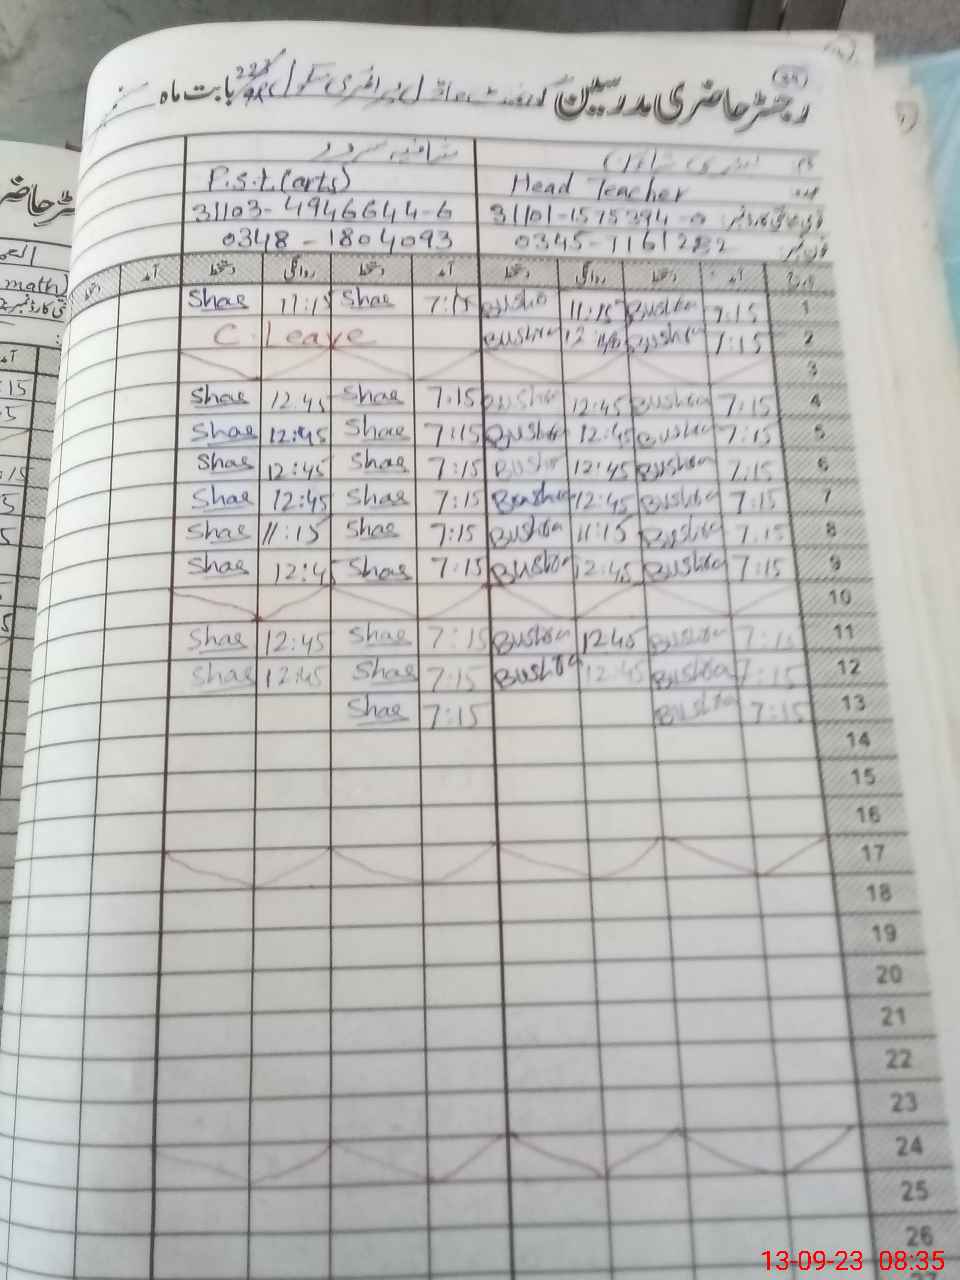 رجسٹر حاضری مدرسین گورنمنٹ ماڈل پرائمری سکول بابت ماہ ستمبر
نام بشریٰ
عہدہ Head Teacher P.S.T(arts)
31101-1575394-0 31103-4946644-6
فون نمبر 0345-7161282 0348-1804093
تاریخ آمد دستخط روانگی دستخط آمد دستخط روانگی دستخط آمد دستخط
1 7:15 Bushra 11:15 Bushra 7:15 Shae 11:15 Shae
2 7:15 Bushra 12 Bushra C.Leave
3
4 7:15 Bushra 12:45 Bushra 7:15 Shae 12:45 Shae
5 7:15 Bushra 12:45 Bushra 7:15 Shae 12:45 Shae
6 7:15 Bushra 12:45 Bushra 7:15 Shae 12:45 Shae
7 7:15 Bushra 12:45 Bushra 7:15 Shae 12:45 Shae
8 7:15 Bushra 11:15 Bushra 7:15 Shae 11:15 Shae
9 7:15 Bushra 12:45 Bushra 7:15 Shae 12:45 Shae
10
11 7:15 Bushra 12:45 Bushra 7:15 Shae 12:45 Shae
12 7:15 Bushra 12:45 Bushra 7:15 Shae 12:45 Shae
13 7:15 Bushra 7:15 Shae
14
15
16
17
18
19
20
21
22
23
24
25
26
math
13-09-23 08:35